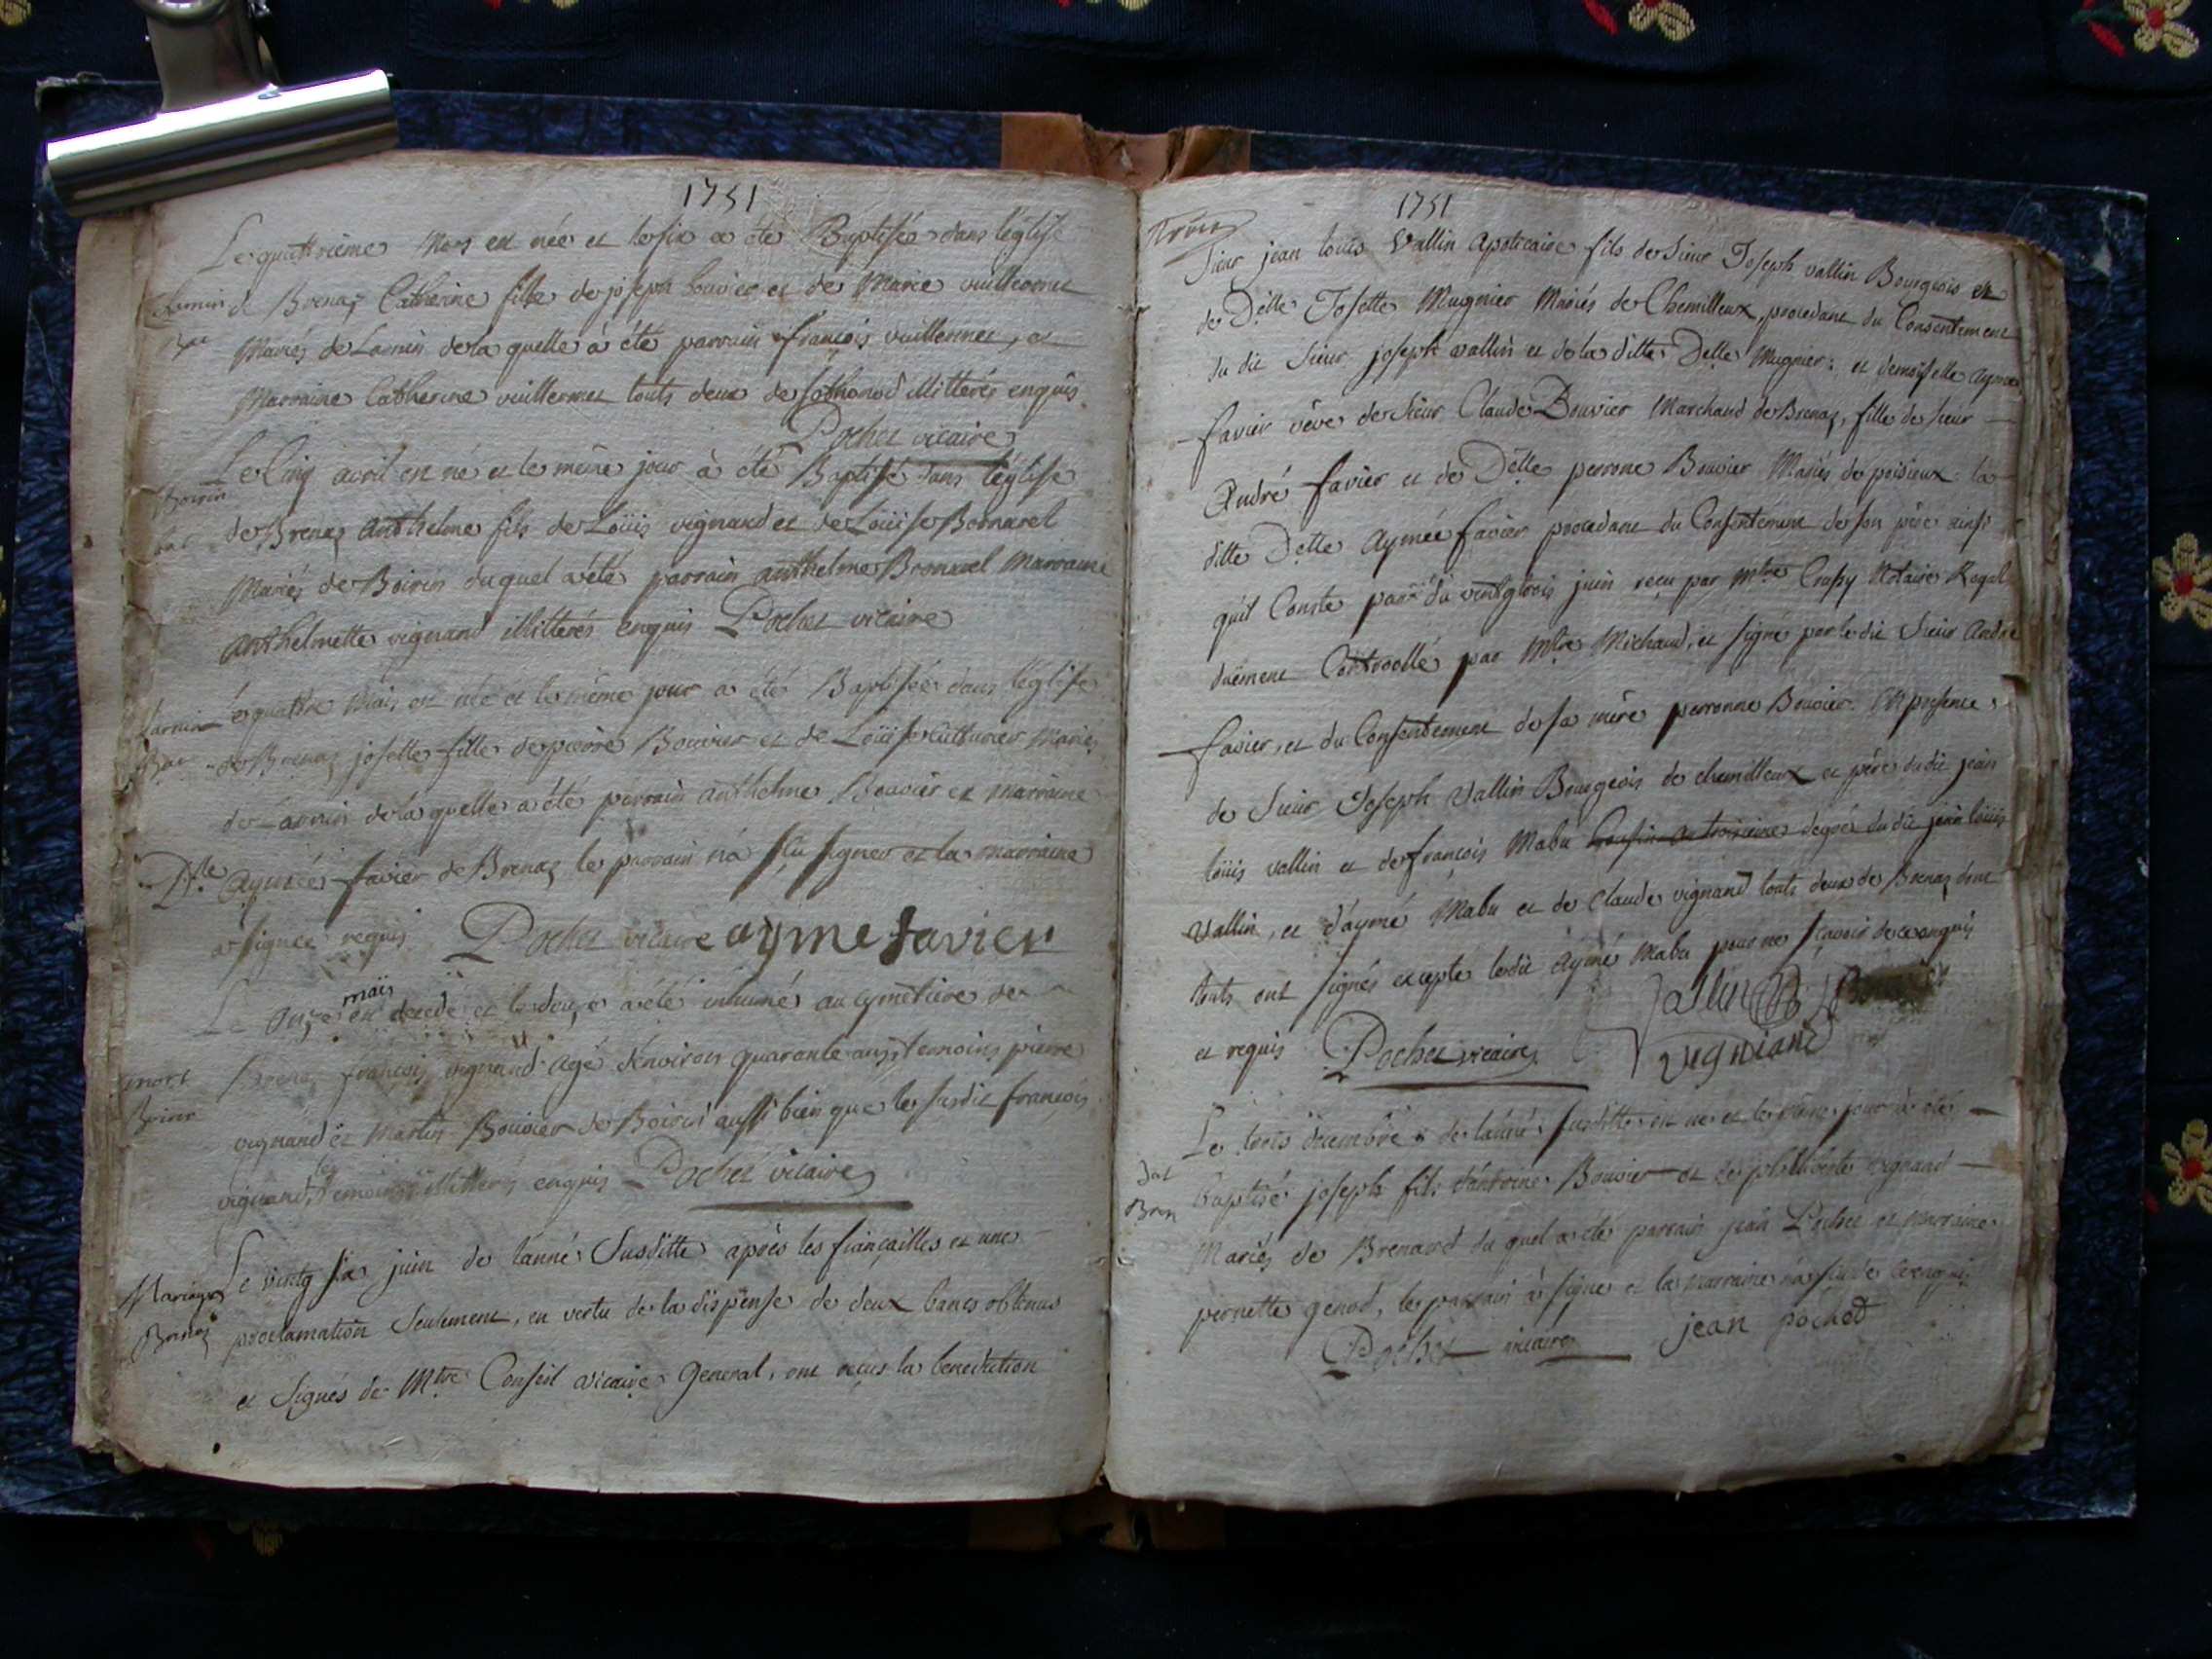 1751
Le quattrième Mars est née et le six a été Baptisée dans l'église
de Brenaz Catherine fille de joseph bouvier et de Marie vuillermet
Lavnin
Bat
Mariés de Lavnin de la quelle à été parrain françois vuillermet, et
Marraine Catherine vuillermet touts deux de sothonod illitterés enquis
Pochet vicaire
Le Cinq avril est né et le même jour à été Baptisé dans l'église
Boirin
bat
de Brenaz Anthelme fils de Loüis vignand et de Loüise Bornarel
Mariés de Boirin du quel a été parrain anthelme Bornarel Marraine
anthelmette vignand illitterés enquis Pochet vicaire
Le quattre Mais est née et le même jour a été Baptisée dans l'église
Lavnin
Bat
de Brenaz josette fille de pierre Bouvier et de Loüise Cutturier Mariés
de Lavnin de la quelle a été parrain anthelme Bouvier et marraine
Dlle Aymée favier de Brenaz le parrain n'a sçu signer et la marraine
a signée requis Pochet vicaire ayme favier
mais
Le onze est decedé et le douze a été inhumé au cymetiere de
Brenaz françois vignand agé d'environ quarante ans, temoins pierre
mort
Boirin
vignand et Martin Bouvier de Boirin aussi bien que le susdit françois
vignand, les temoins illitterés enquis Pochet vicaire
Le vintg six juin de l'anné susditte après les fiançailles et une
Mariage
Brenaz
proclamation seulement, en vertu de la dispense de deux bancs obtenus
et signés de Mtre Conseil vicaire General, ont reçus la benediction
1751
Sieur jean louis Vallin Apoticaire fils de Sieur Joseph vallin Bourgeois et
de Delle Josette Mugnier Mariés de Chemilleux, procedant du Consentement
du dit Sieur joseph vallin et de la ditte Delle Mugnier: et demoiselle Aymée
favier vêve de Sieur Claude Bouvier Marchand de Brenaz, fille de sieur
André favier et de Delle perrone Bouvier Mariés de poisieux: la
ditte Delle Aymée favier procedant du Consentement de son père ainsi
qu'il Conste par du vintgtrois juin reçu par Mtre Crussy Notaire Royal
duëment Controollé par Mtre Michaud, et signé par le dit Sieur André
favier, et du Consentement de sa mère perronne Bouvier. En presence
de Sieur Joseph Vallin Bourgeois de chemilleux et père du dit jean
loüis vallin et de françois Mabu Cousin au troisieme degré du dit jean loüis
Vallin, et d'aymé Mabu et de Claude vignand touts deux de Brenaz dont
touts ont signés excepté le dit Aymé Mabu pour ne sçavoir de ce enquis
et requis Pochet vicaire Vallin
vigniand
Le trois decembre de l'anné susditte est né et le même jour à été
Bat
Bren
baptisé joseph fils d'antoine Bouvier et de philliberte vignand
Mariés de Brenard du quel a été parrain jean Pochet et marraine
pernette genod, le parrain à signé et la marraine n'a sçu de ce enquis
Pochet vicaire jean pochet